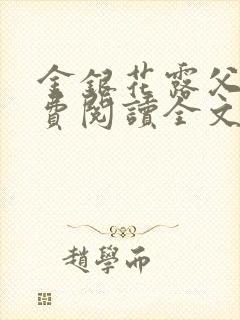 金銀花露父
費閱讀全文
趙學而